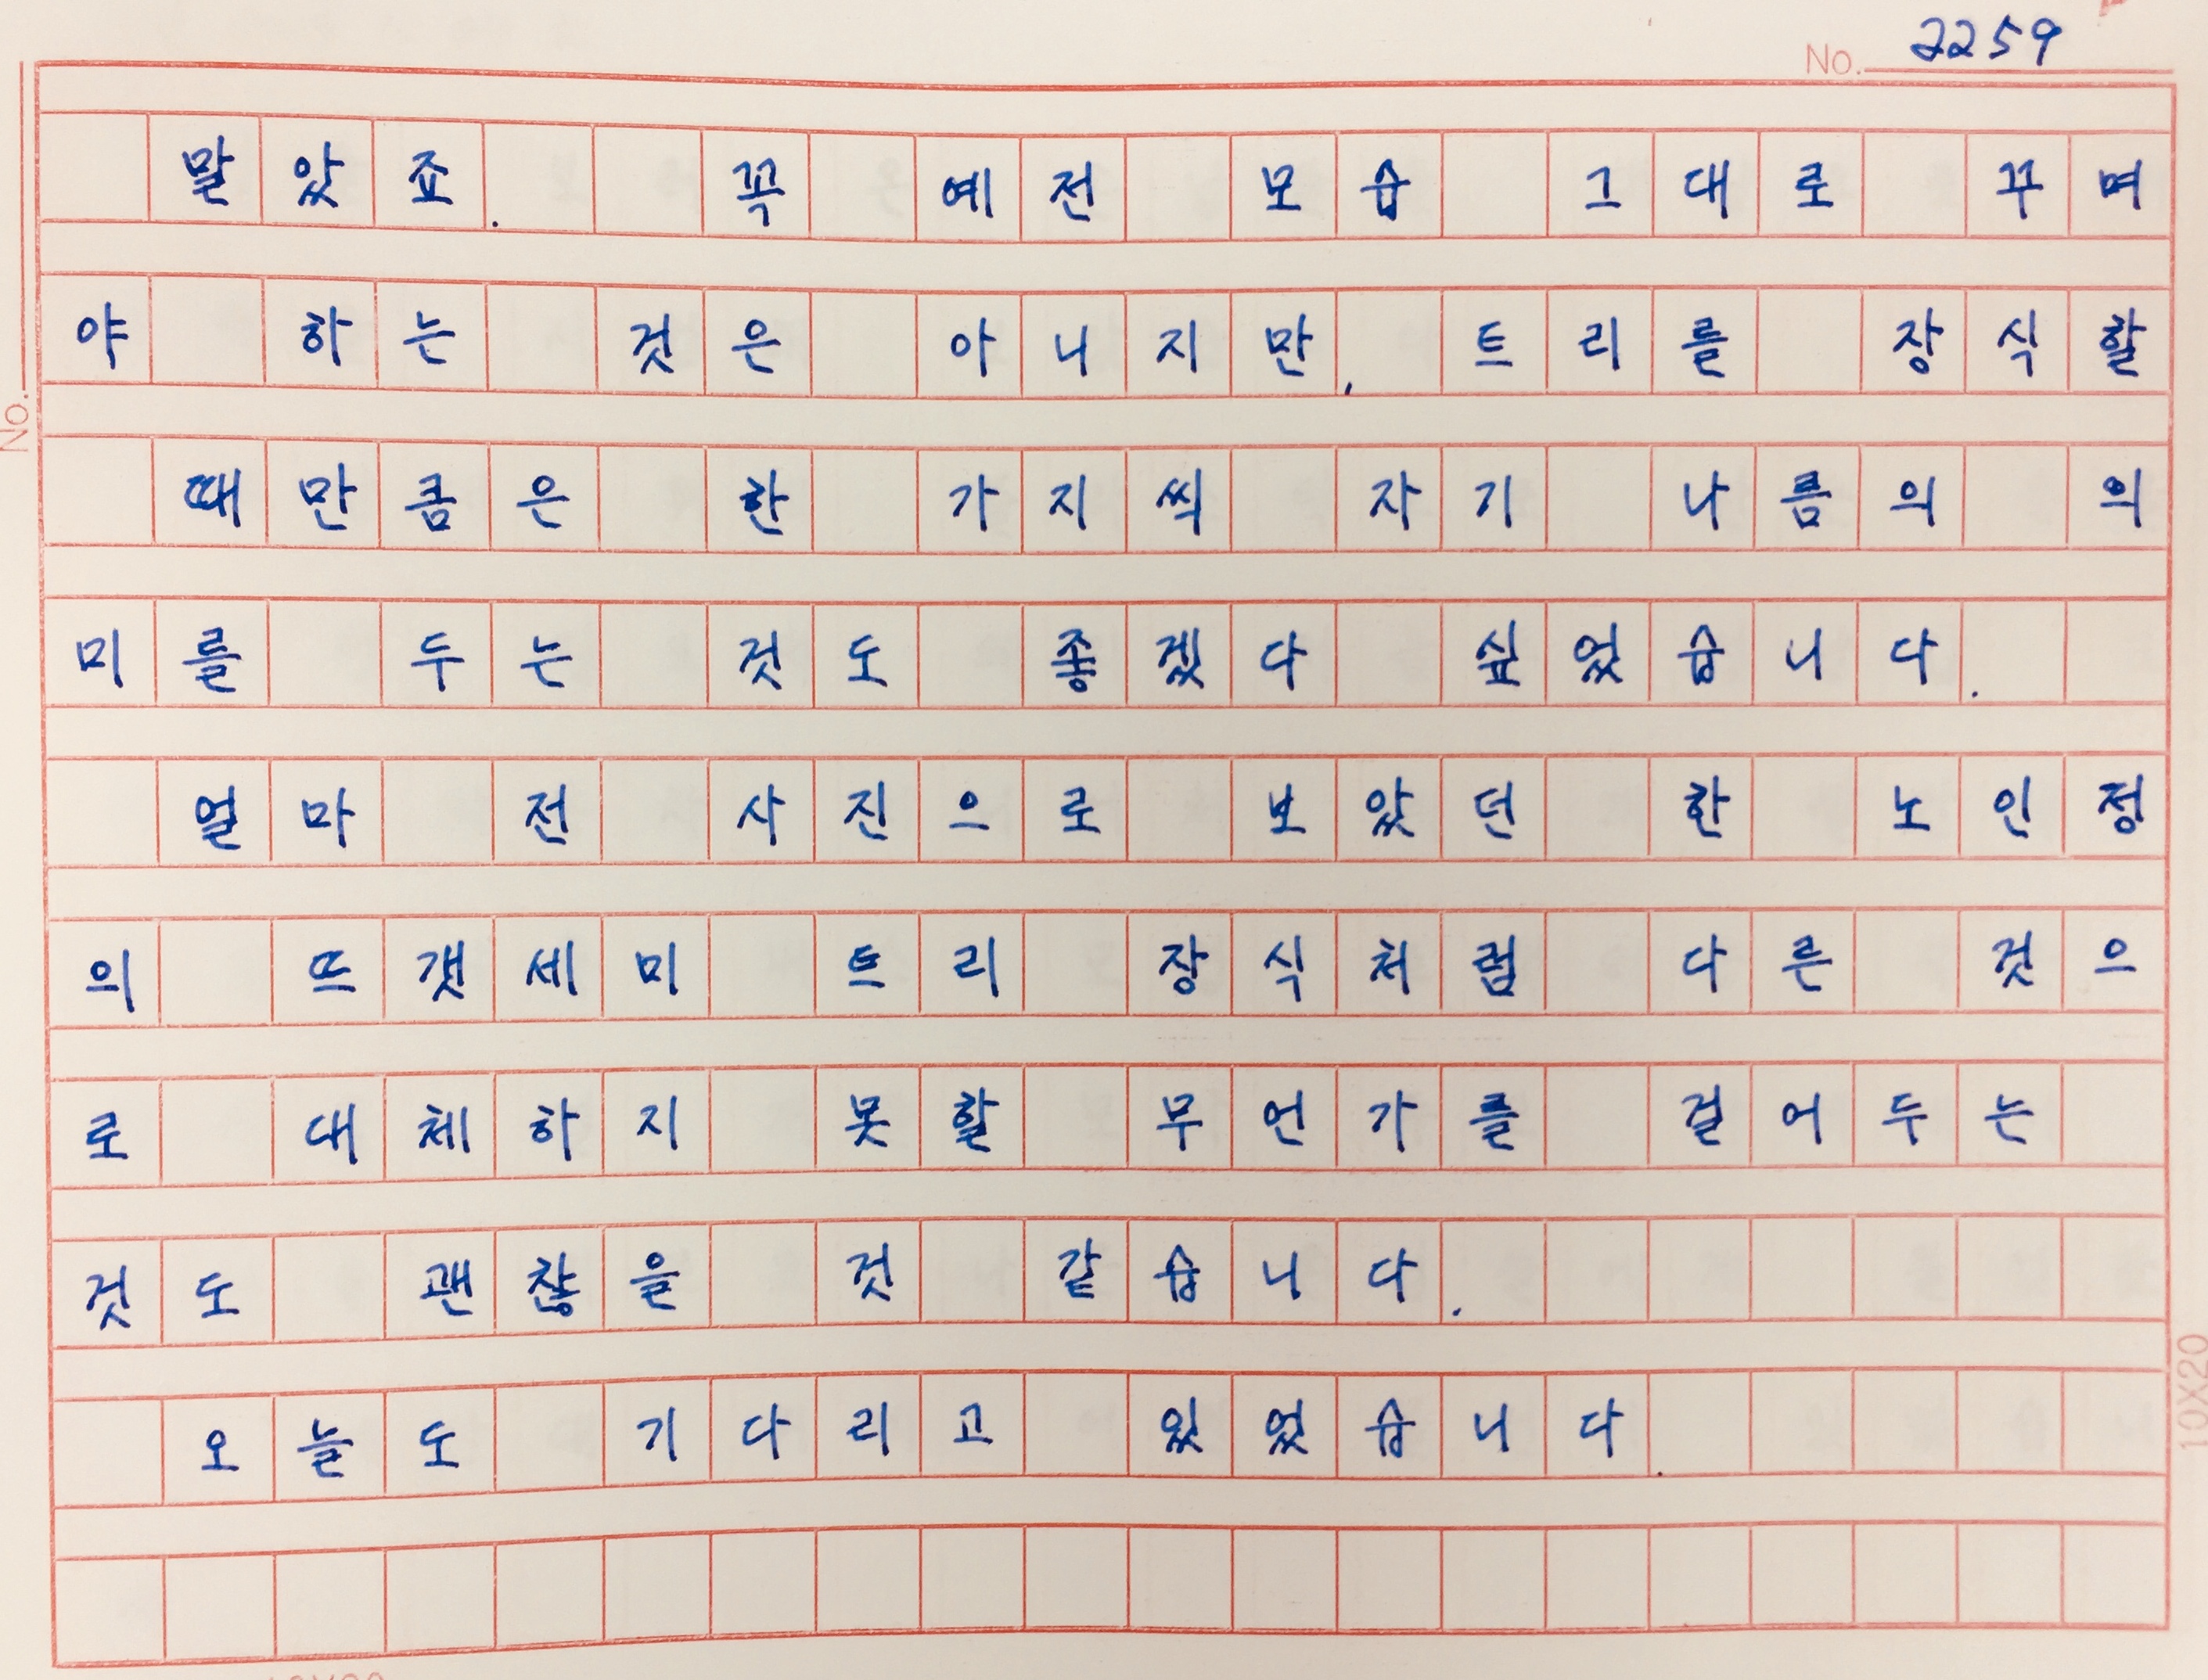 No. 2259
말았죠. 꼭 예전 모습 그대로 꾸며
야 하는 것은 아니지만, 트리를 장식할
No.
때만큼은 한 가지씩 자기 나름의 의
미를 두는 것도 좋겠다 싶었습니다.
얼마 전 사진으로 보았던 한 노인정
의 뜨갯세미 트리 장식처럼 다른 것으
로 대체하지 못할 무언가를 걸어두는
것도 괜찮을 것 같습니다.
오늘도 기다리고 있었습니다.
10X20